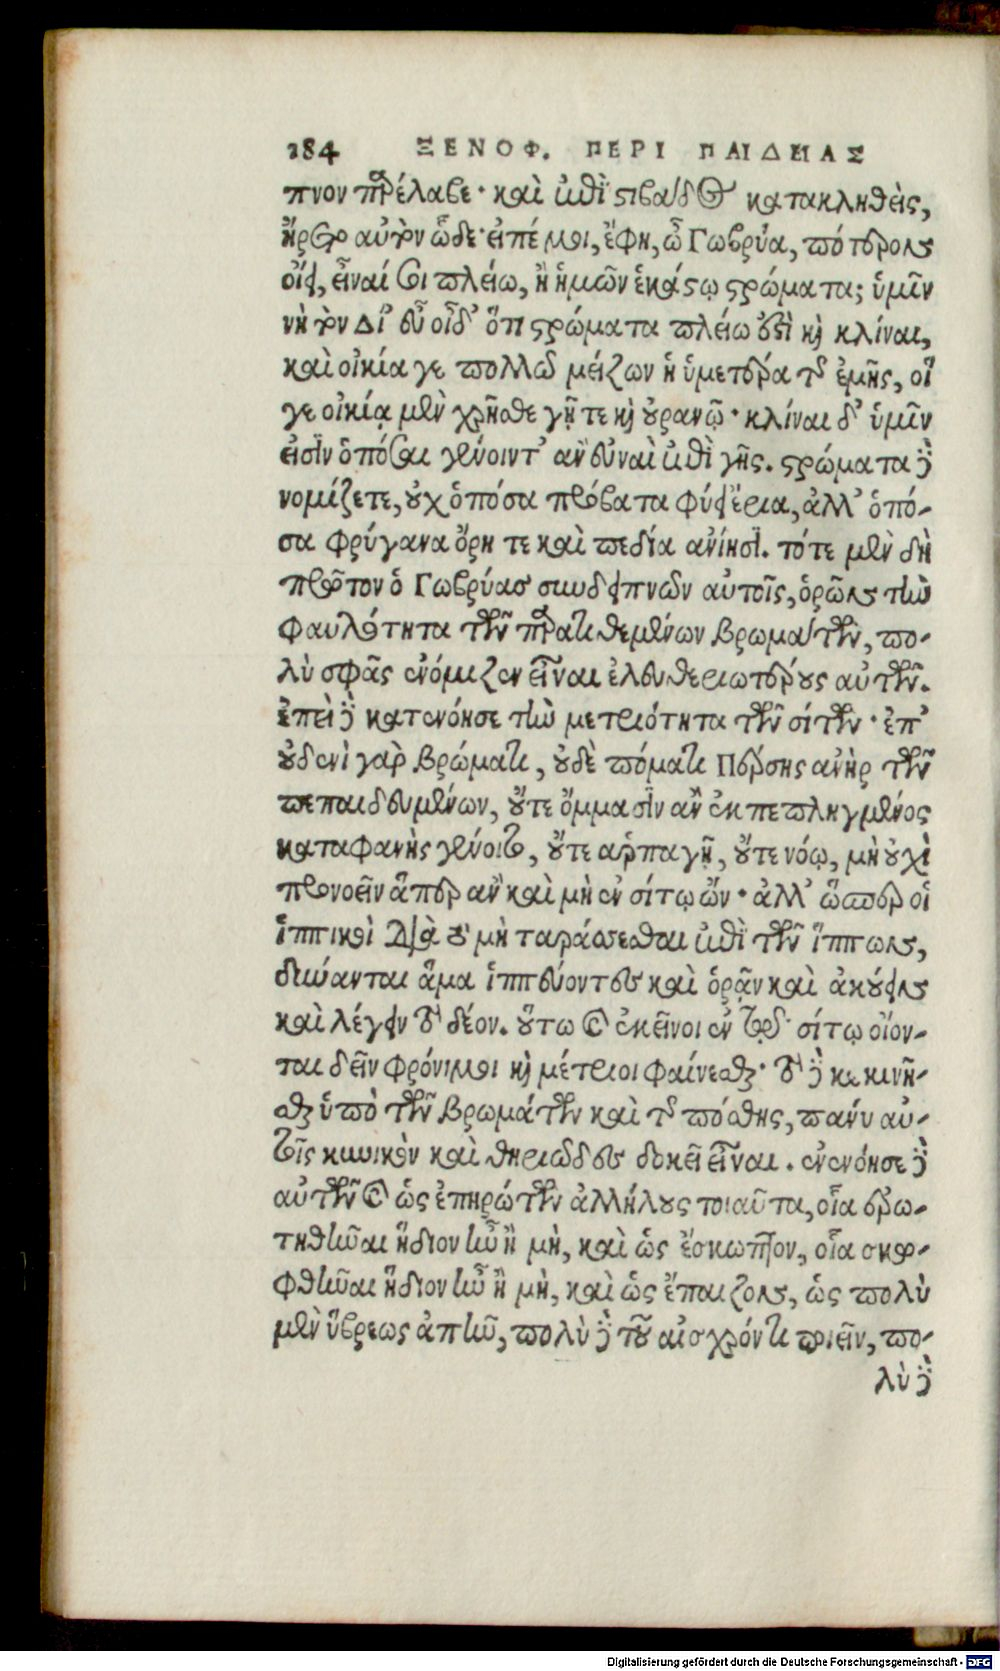 184 ΞΕΝΟΦ. ΠΕΡΙ ΠΑΙΔΕΙΑΣ
πνον παρέλαβε· καὶ ἐπὶ στιβάδος κατακληθεὶς,
ἤρετο αὐτὸν ὧδε· εἰπέ μοι, ἔφη, ὦ Γωβρύα, πότερον
οἴει, εἶναί σοι πλείω, ἢ ἡμῶν ἑκάστῳ στρώματα; ὑμῖν
νὴ τὸν Δί' εὖ οἶδ' ὅτι στρώματα πλείω ἐστὶ καὶ κλίναι,
καὶ οἰκία γε πολλῷ μείζων ἡ ὑμετέρα τῆς ἐμῆς, οἵ
γε οἰκίᾳ μὲν χρῆσθε γῇ τε καὶ οὐρανῷ· κλίναι δ' ὑμῖν
εἰσὶν ὁπόσαι γένοιντ' ἂν εὐναὶ ἐπὶ γῆς. στρώματα δὲ
νομίζετε, οὐχ ὁπόσα πρόβατα φύει ἔρια, ἀλλ' ὁπό-
σα φρύγανα ὄρη τε καὶ πεδία ἀνίησι. τότε μὲν δὴ
πρῶτον ὁ Γωβρύας συνδειπνῶν αὐτοῖς, ὁρῶν τὴν
φαυλότητα τῶν παρατιθεμένων βρωμάτων, πο-
λὺ σφᾶς ἐνόμιζεν εἶναι ἐλευθεριωτέρους αὐτῶν.
ἐπεὶ δὲ κατενόησε τὴν μετριότητα τῶν σίτων· ἐπ'
οὐδενὶ γὰρ βρώματι, οὐδὲ πόματι Πέρσης ἀνὴρ τῶν
πεπαιδευμένων, οὔτε ὄμμασιν ἂν ἐκπεπληγμένος
καταφανὴς γένοιτο, οὔτε ἁρπαγῇ, οὔτε νόῳ, μὴ οὐχὶ
προνοεῖν ἅπερ ἂν καὶ μὴ ἐν σίτῳ ὤν· ἀλλ' ὥσπερ οἱ
ἱππικοὶ διὰ τὸ μὴ ταράσσεσθαι ἐπὶ τῶν ἵππων,
δύνανται ἅμα ἱππεύοντες καὶ ὁρᾷν καὶ ἀκούειν
καὶ λέγειν τὸ δέον. οὕτω καὶ ἐκεῖνοι ἐν τῷ σίτῳ οἴον-
ται δεῖν φρόνιμοι καὶ μέτριοι φαίνεσθαι· τὸ δὲ κεκινῆ-
σθαι ὑπὸ τῶν βρωμάτων καὶ τῆς πόσης, πάνυ αὐ-
τοῖς κυνικὸν καὶ θηριῶδες δοκεῖ εἶναι. ἐνενόησε δὲ
αὐτῶν καὶ ὡς ἐπηρώτων ἀλλήλους τοιαῦτα, οἷα ἐρω-
τηθῆναι ἥδιον ἦν ἢ μὴ, καὶ ὡς ἔσκωπτον, οἷα σκω-
φθῆναι ἥδιον ἦν ἢ μὴ, καὶ ὡς ἔπαιζον, ὡς πολὺ
μὲν ὕβρεως ἀπῆν, πολὺ δὲ τοῦ αἰσχρόν τι ποιεῖν, πο-
λὺ δὲ
Digitalisierung gefördert durch die Deutsche Forschungsgemeinschaft - DFG